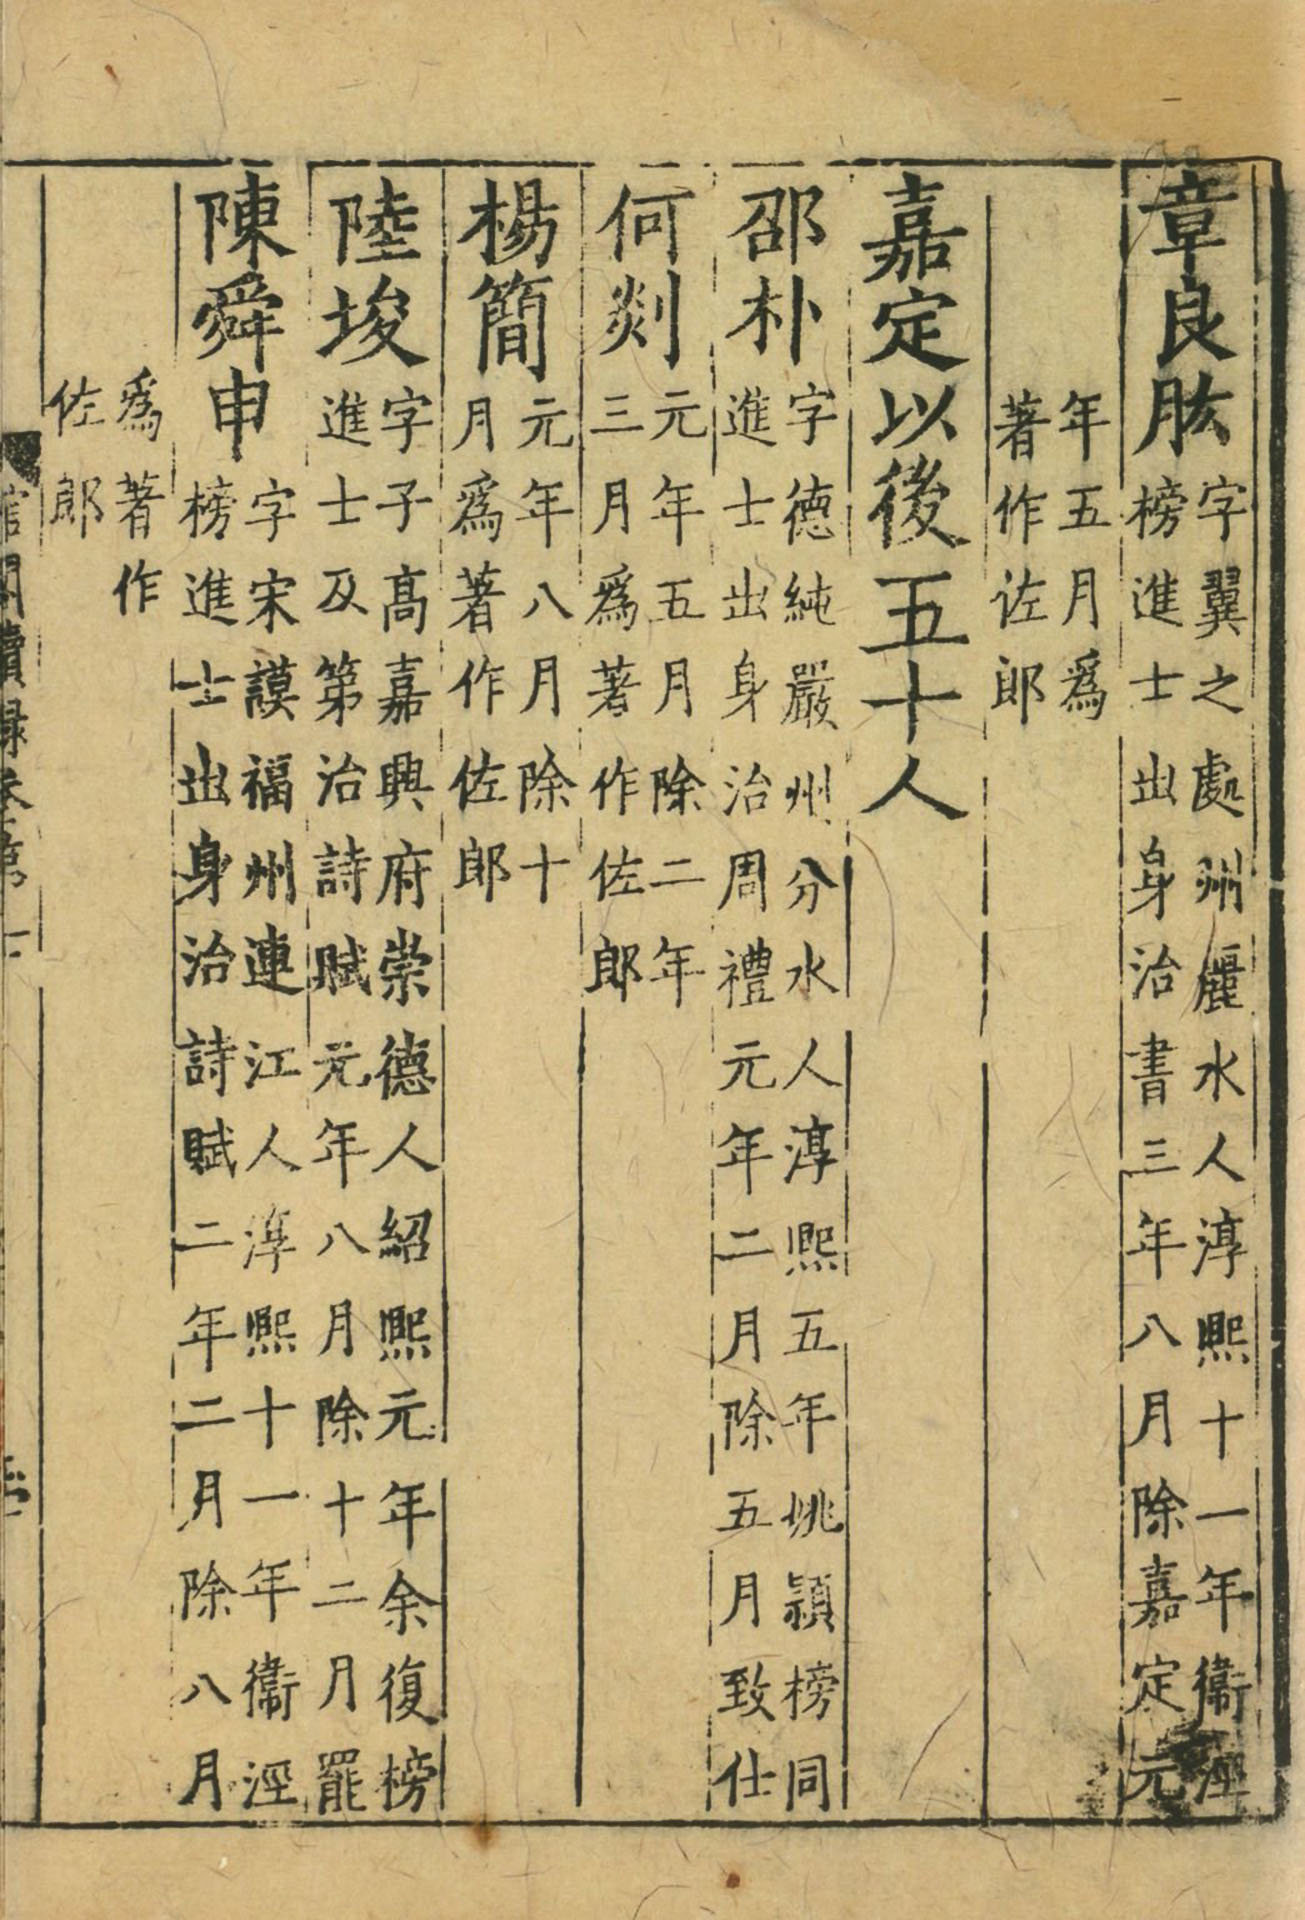 章良肱字翼之處州麗水人淳熙十一年衞涇
榜進士出身治書三年八月除嘉定元
年五月爲
著作佐郎
嘉定以後五十人
邵朴字德純嚴州分水人淳熙五年姚潁榜同
進士出身治周禮元年二月除五月致仕
何剡元年五月除二年
三月爲著作佐郎
楊簡元年八月除十
月爲著作佐郎
陸埈字子高嘉興府崇德人紹熙元年余復榜
進士及第治詩賦元年八月除十二月罷
陳舜申字宋謨福州連江人淳熙十一年衞涇
榜進士出身治詩賦二年二月除八月
爲著作
佐郎
館閣續録卷第